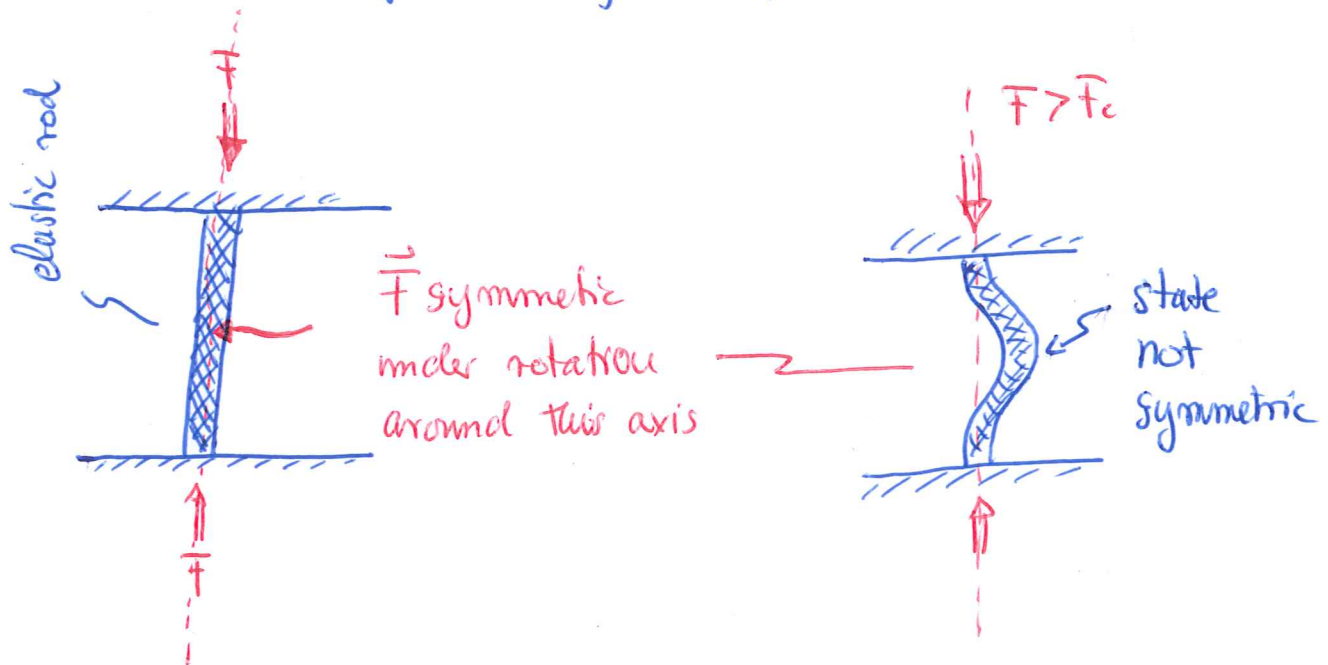 elastic rod
F
F⃗ symmetic
under rotation
around this axis
F
F > Fc
state
not
symmetric